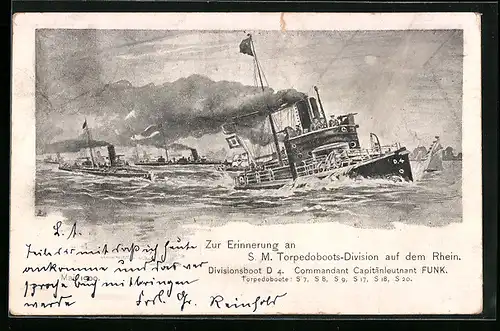 D 4.
Zur Erinnerung an
S. M. Torpedoboots-Division auf dem Rhein.
Divisionsboot D 4. Commandant Capitänleutnant FUNK.
Torpedoboote: S 7, S 8, S 9, S 17, S 18, S 20.
L. A.
mit daß ich heute
ankomme und das ver
sproche buch mitbringen
werde
Frdl. Gr. Reinhold